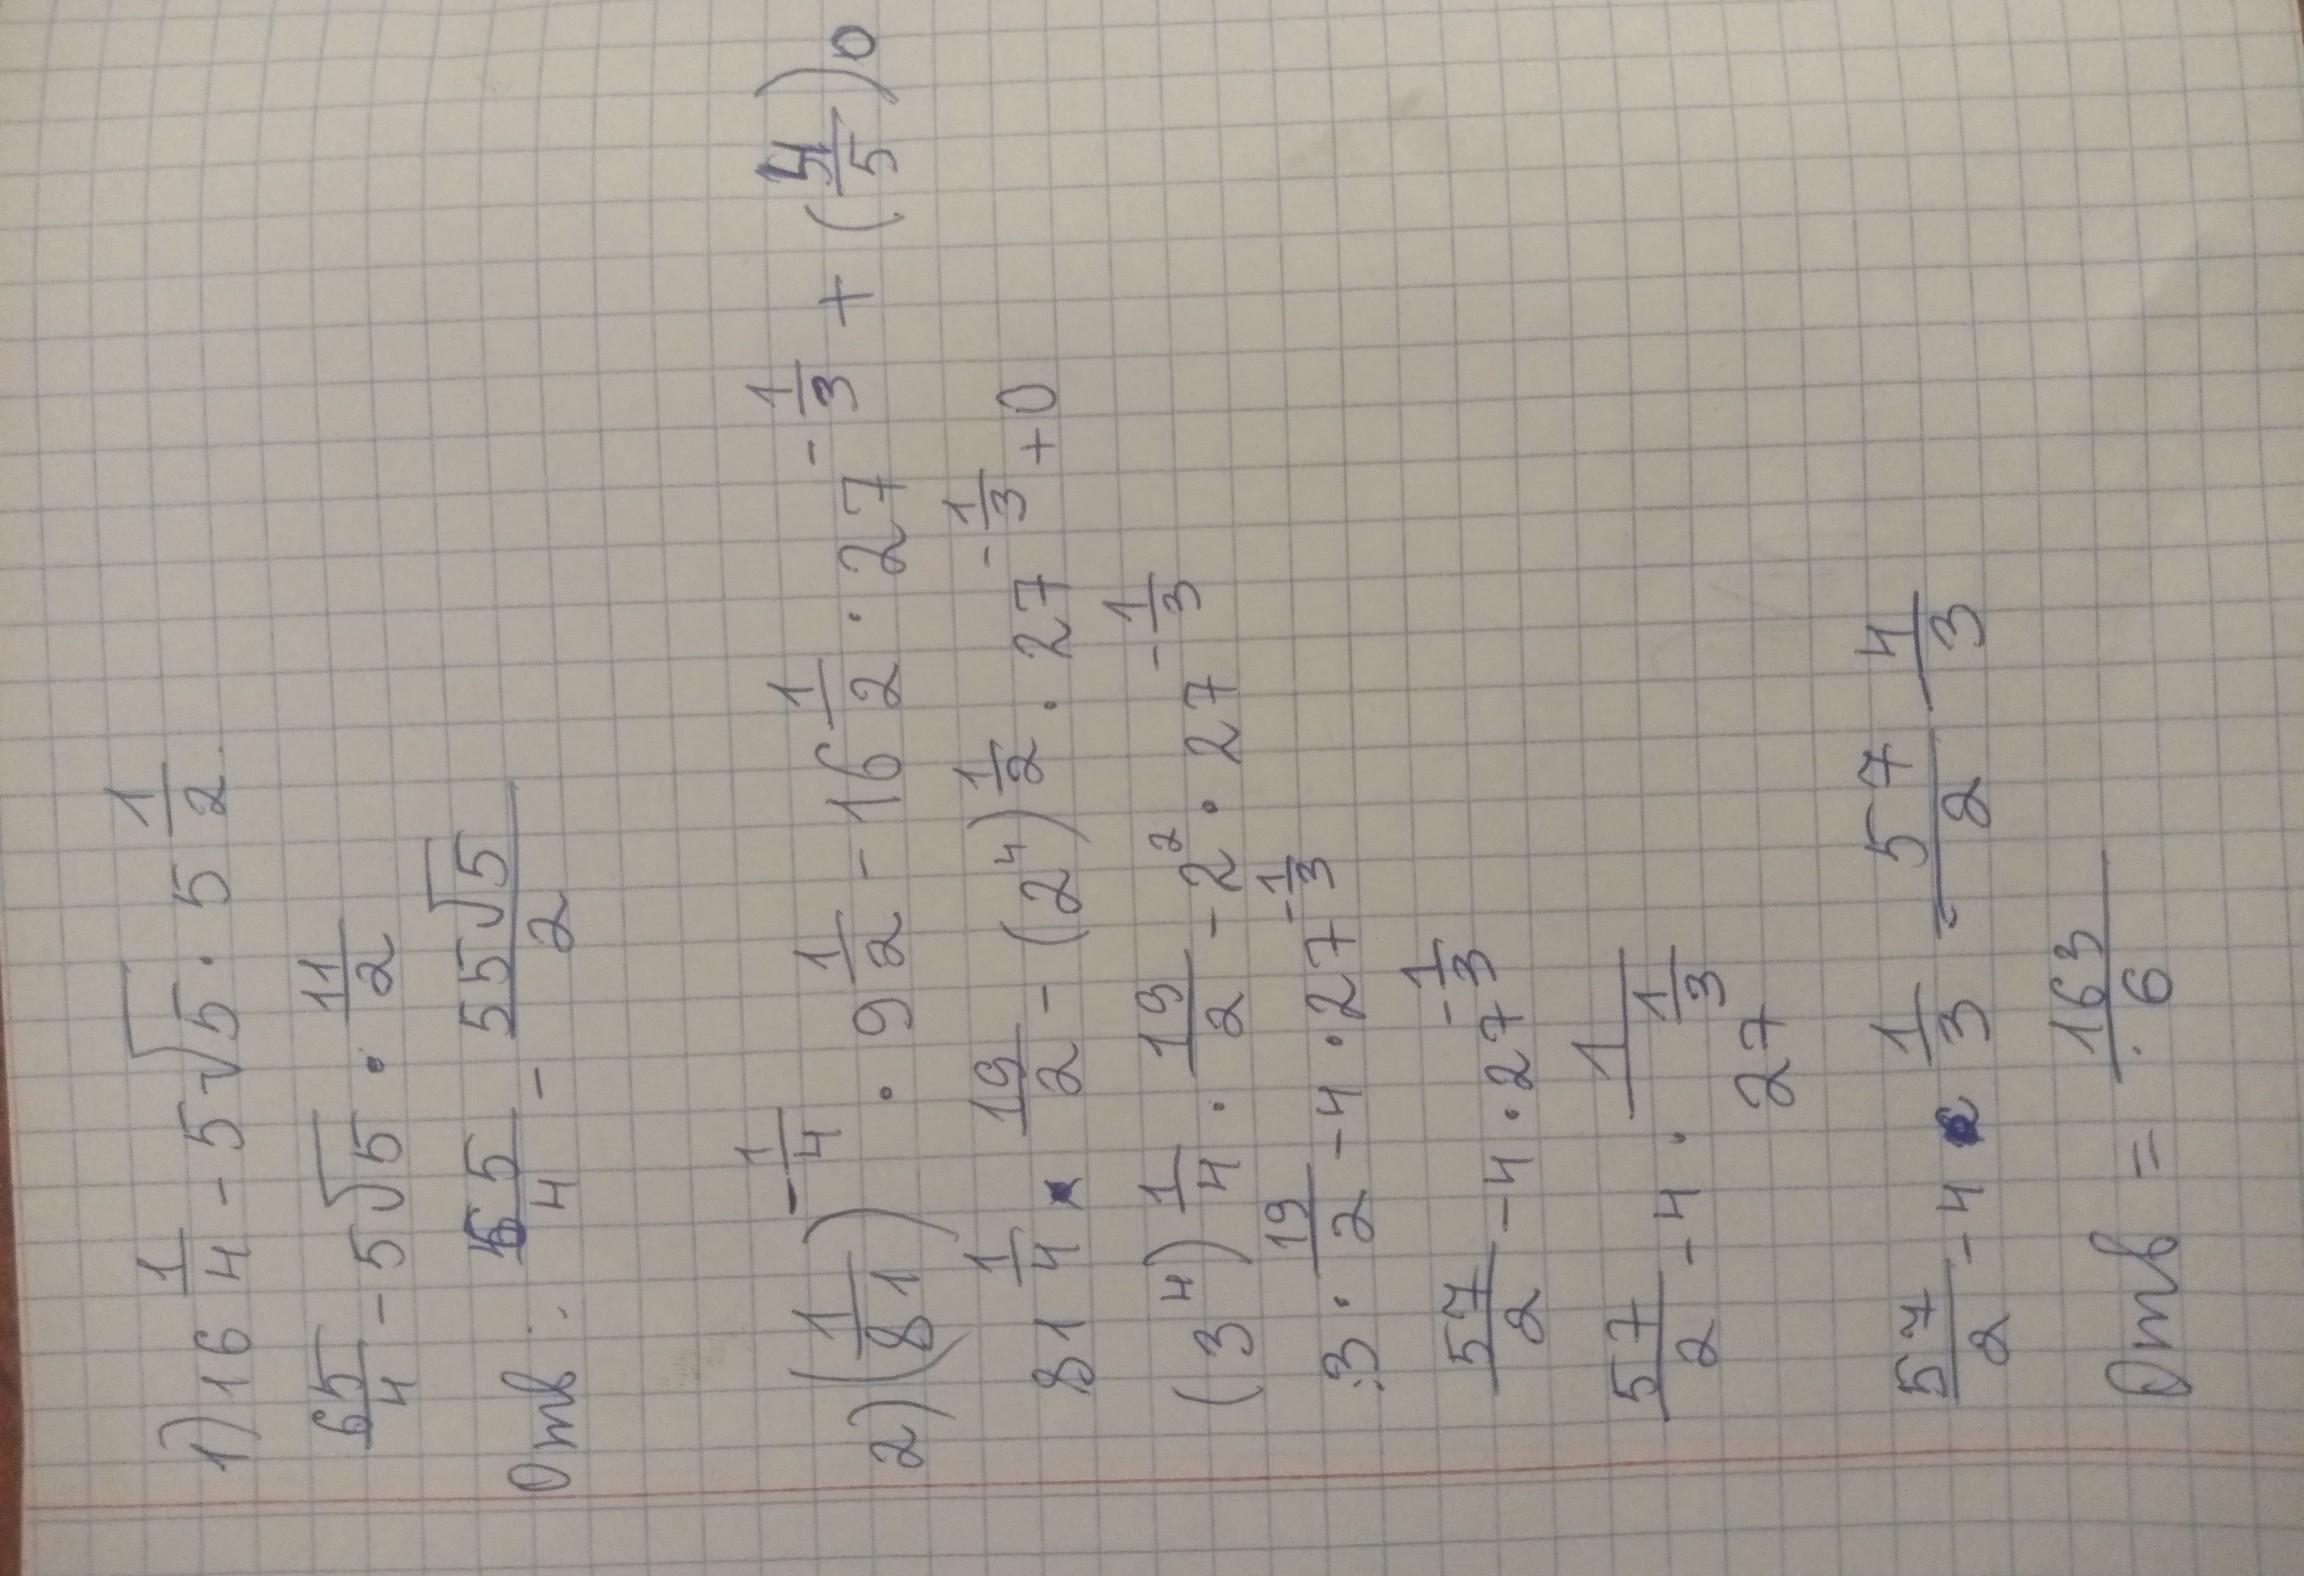 1) 16 1/4 - 5√5 · 5 1/2
65/4 - 5√5 · 11/2
Отв: 65/4 - 55√5/2
2) (1/81)^(-1/4) · 9 1/2 - 16 1/2 · 27^(-1/3) + (4/5)0
81 1/4 · 19/2 - (2^4)^(1/2) · 27^(-1/3) + 0
(3^4)^(1/4) · 19/2 - 2^2 · 27^(-1/3)
3 · 19/2 - 4 · 27^(-1/3)
57/2 - 4 · 27^(-1/3)
57/2 - 4 · 1/27^(1/3)
57/2 - 4 · 1/3 = 57/2 - 4/3
Отв = 163/6